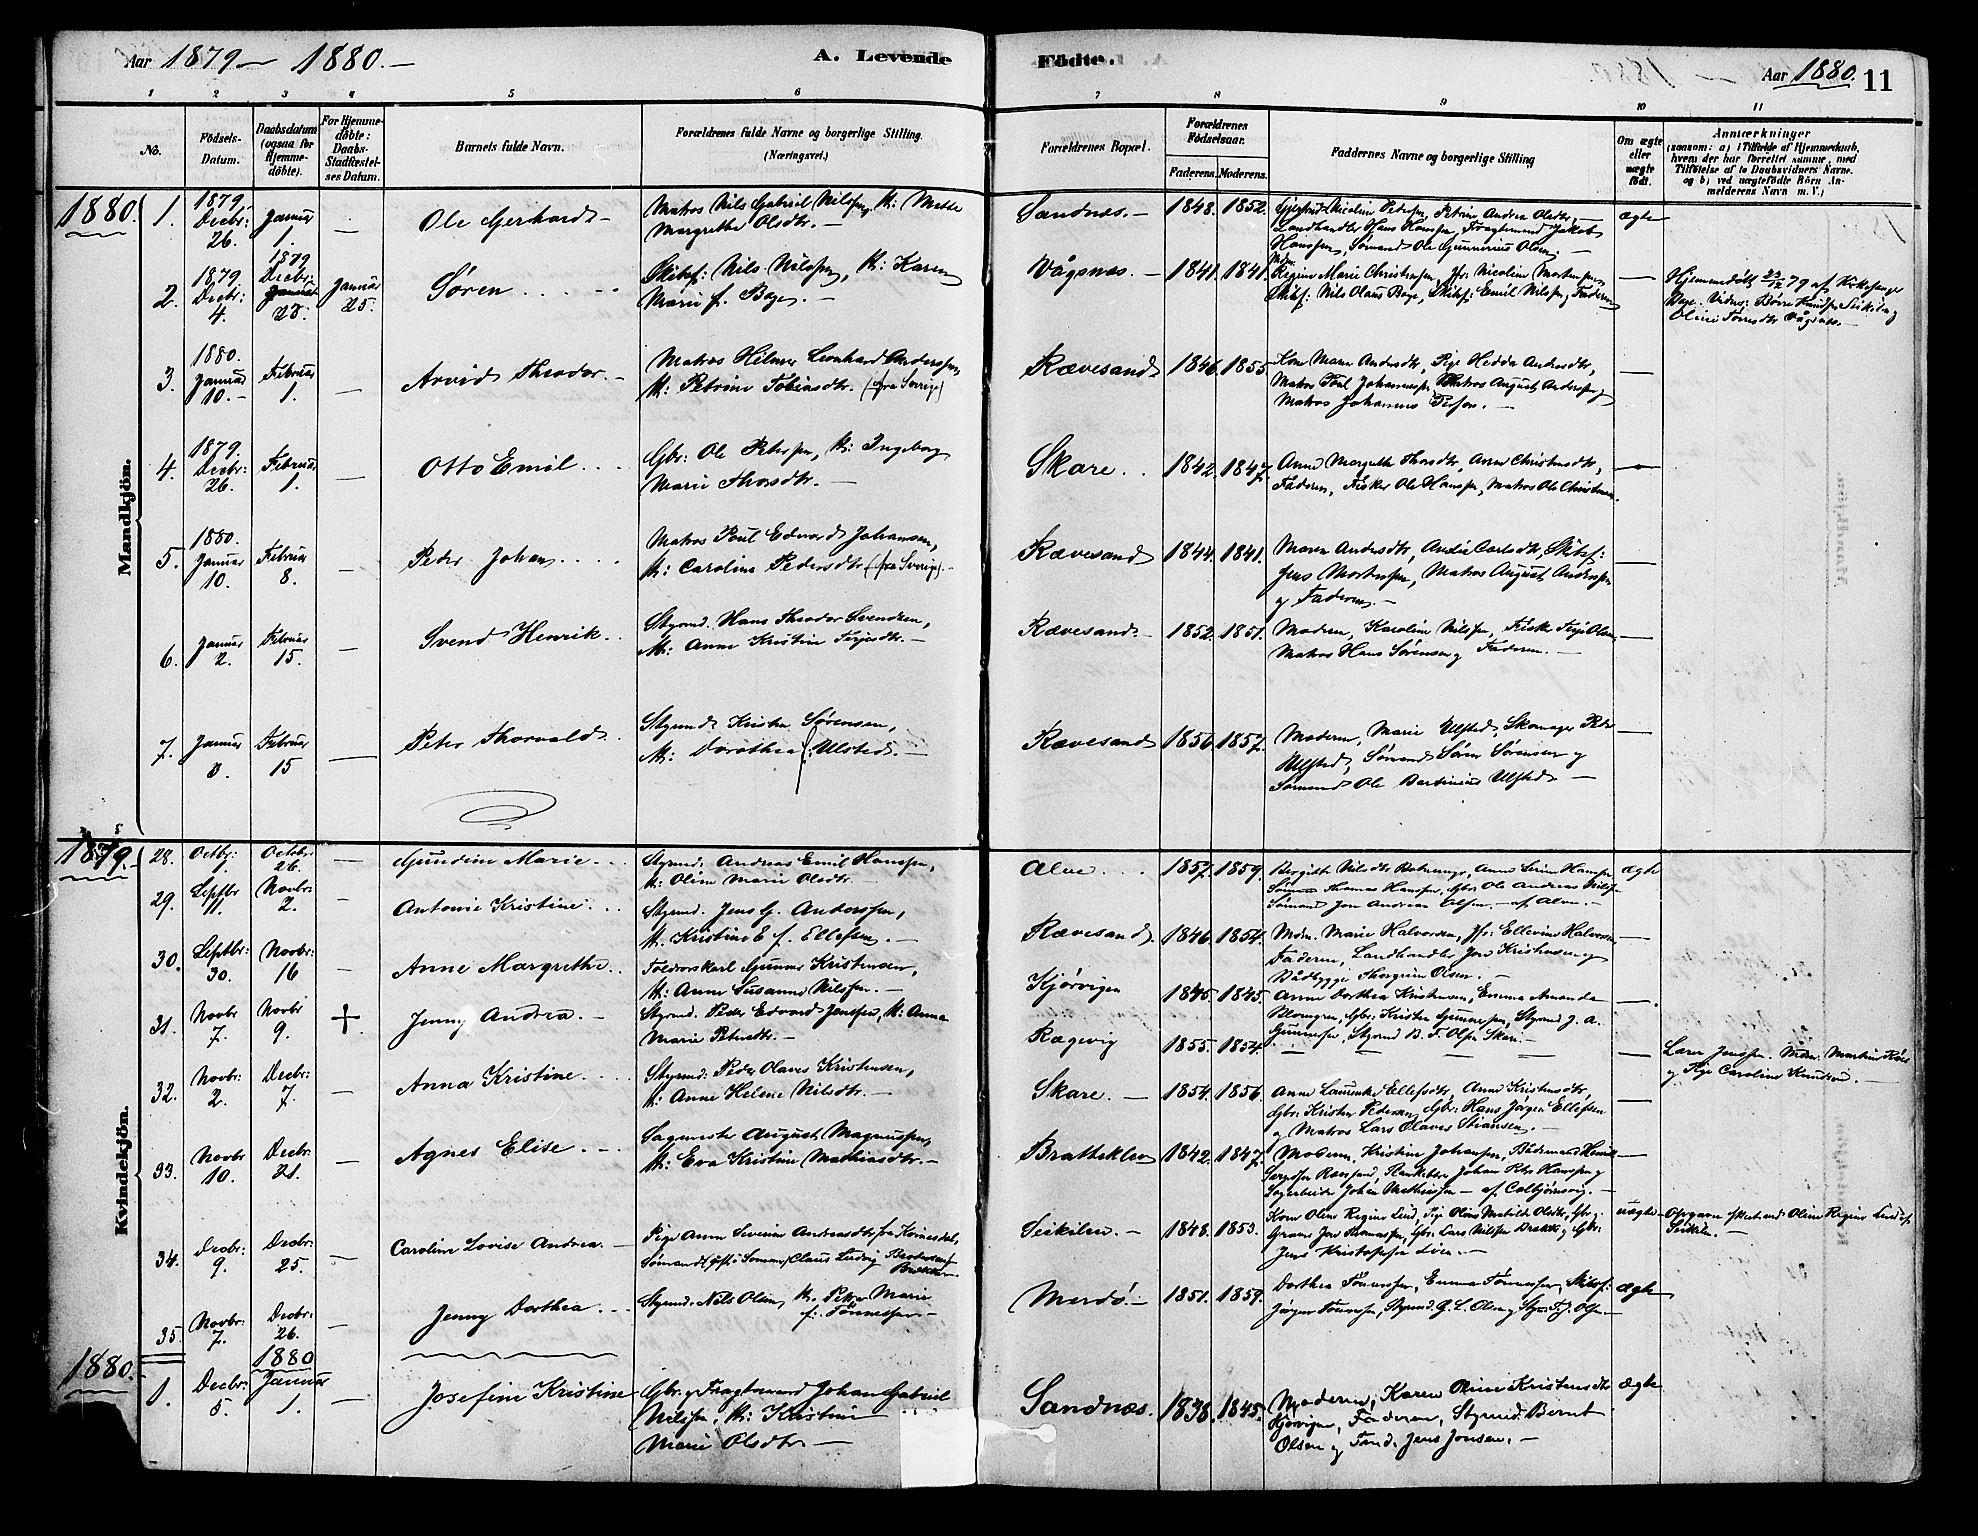 Aar 1879 — 1880. —
A. Levende
Fødte.
Aar 1880. 11
1 2 3 4 5 6 7 8 9 10 11
No.
Födsels-
Datum.
Daabsdatum
(ogsaa for
Hjemme-
döbte).
For Hjemme-
döbte:
Daabs-
Stadfæstel-
ses Datum.
Barnets fulde Navn.
Forældrenes fulde Navne og borgerlige Stilling.
(Næringsvei.)
Forældrenes Bopæl.
Forældrenes
Fødselsaar.
Faderens. Moderens.
Faddernes Navne og borgerlige Stilling
Om ægte
eller
uægte
født.
Anmærkninger
(saasom: a) i Tilfælde af Hjemmedaab,
hvem der har forrettet samme, med
Tilføielse af to Daabsvidners Navne.
og b) ved uægtefödte Börn An-
melderens Navn m. V.)
Mandkjön.
1880. 1. 1879. Decbr: 26. Januar 1. — Ole Gerhard — Matros Nils Gabriel Nilssen, H: Mette
Margrethe Olsdtr. — Sandnæs. — 1848. 1852. Nicoline Pedersen, Petrine Andrea Olsdtr, —
Landhandler Hans Hanssen, Fragtemand Jakob
Hanssen, Sömand Ole Gunnerius Olsen. — ægte
2. 1879 Decbr: 4. 1879 Decbr: 23. Januar 25. Søren Skibsf: Nils Nilssen, H: Karen
Marie f. Boye. — Vågsnæs. — 1841. 1841. Mdm. Regine Marie Christensen, Jfr: Nicoline Mortensen,
Skibsf: Nils Olaus Boye, Skibsf: Emil Nilssen, Faderen —
Hjemmedöbt 23/12 79 af Kirkesanger
Boye. Vidner: Börre Knudsen Seikilen og
Oline Torresdtr Vågsnæs. —
3. 1880. Januar 10. — Februar 1. — Arvid Theodor. — Matros Hilmer Leonhard Anderssen,
H: Petrine Tobiasdtr. (fra Sverige) Rævesand 1846. 1855. Kone Maren Andersdtr, Pige Hedda Andersdtr,
Matros Poul Johannessen, Matros August Anderssen og
Matros Johannes Person. — —
4. 1879. Decbr: 26. Februar 1. — Otto Emil Gbr: Ole Peterssen, H: Ingeborg
Marie Thorsdtr. — Skare 1842. 1847. Anne Margrethe Thorsdtr, Anne Christensdtr,
Faderen, Fisker Ole Hanssen, Matros Ole Christensen. —
5. 1880. Januar 10. Februar 8. — Peder Johan Matros Poul Edvard Johansen,
H: Caroline Pedersdtr (fra Sverige) — Rævesand 1844. 1841. Maren Andersdtr, Andrea Carlsdtr, Skibsf:
Jens Mortenssen, Matros August Anderssen
og Faderen. — —
6. Januar 2. Februar 15. — Svend Henrik Styrmd. Hans Theodor Svendsen,
H: Anne Kristine Terjesdtr. — Rævesand. — 1852. 1851. Moderen, Karoline Nilssen, Fisker Terje Olsen,
Matros Hans Sørensen og Faderen. — —
7. Januar Februar 15 — Peter Thorvald Styrmd. Kristen Sørensen,
H: Dorothea f: Ulsted. — Rævesand 1856. 1857. Moderen, Marie Ulsted, Skomager Peder
Ulsted, Sømand Søren Sørensen og
Sømand Ole Bertinius Ulsted — —
Kvindekjön.
1879. 28. Octbr: 1. Octobr: 26. — Gundine Marie Styrmd: Andreas Emil Hanssen,
H: Oline Marie Olsdtr. — Alve 1857. 1859. Bergitte Nilsdtr, Anne Hanssen,
Sømand Thomas Hanssen, Gbr. Ole Andreas Nilss.,
Sømand Jon Andreas Olsen. — af Alve. — ægte
29. Septbr 11. Novbr: 2. — Antonie Kristine Styrmd. Jens G. Anderssen,
H. Kristine E. f. Ellefsen. — Rævesand. 1846. 1854. Mdm. Marie Halvorsen, Jfr: Ellevine Halvorsen,
Faderen, Landhandler Jon Kristensen og
Bådbygger Thorgrim Olsen. — —
30. Septbr: 30. Novbr: 16 — Anne Margrethe Toldvorskarl Gunner Kristensen,
H: Anne Susanne Nilssen. — Kjørvigen 1845. 1845. Anne Dorthea Kristensen, Emma Amanda
Blomgren, Gbr: Kristen Gunnersen, Styrmd J. A.
Gunnersen, Styrmd B. T. Olsen Skare. — —
31. Novbr 7. Novbr 9. + Jenny Andrea. — Styrmd. Peder Edvard Jenssen, H: Anne
Marie Petersdtr. — Rægevig 1855. 1854. — — — — — Lærer Jenssen. Mdm: Martine
og Pige Caroline Knudsen. —
32. Novbr: 2. Decbr: 7. — Anna Kristine Styrmd: Peder Olaves Kristensen,
H: Anne Helene Nilsdtr. — Skare. — 1854. 1856. Anne Laurentse Ellefsdtr, Anne Kristensdtr,
Gbr: Kristen Pedersen, Gbr: Hans Jørgen Ellefsen
og Matros Lars Olaves Stiansen. — —
33. Novbr 10. Decbr: 21. — Agnes Elise Sagmester August Magnussen,
H: Eva Kristine Mathiasdtr. — Bratteklev 1842. 1847. Moderen, Kristine Johansen, Bådsmand Henrik
Johan Hanssen og
Sagarbeider Johan Mathiassen — af Colbjørnsvig. — —
34. Decbr: 9. Decbr: 25. — Caroline Lovise Andrea. — Pige Anne Severine Andreasdtr fra Kvinesdal,
Sømand (gift) Claus Ludvig Berntsen
Seikilen — 1848. 1853. Kone Oline Regine Lind, Pige Oline Matilde Olsdtr, Gbr.
Jens Thomassen, Gbr: Lars Nilssen og Gbr.
Jens Kristofersen — uægte — Opgaven skeet ved Oline Regine Lind af
Seikilen. —
35. Novbr: 7. Decbr: 26. — Jenny Dorthea. Styrmd. Nils Olsen, H. Petra Marie
f: Tönnessen — Merdö. — 1851. 1859. Dorthea Tönnessen, Emma Tönnessen, Skibsf:
Jørgen Tönnessen, Styrmd. G. L. Olsen og Styrmd. Olsen — ægte
1880. 1. Decbr: 5. 1880 Januar 1. — Josefine Kristine Gbr. og Fragtemand Johan Gabriel
Nilssen, H: Kristine
Marie Olsdtr. — Sandnæs. 1838. 1845. Moderen, Karen Oline Kristensdtr
Kjørvigen, Faderen, Styrmd. Bernt
Olsen og Jens Jensen. — ægte